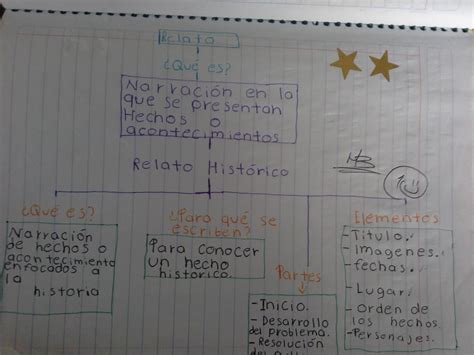 Relato
¿Qué es?
Narración en la
que se presentan
Hechos o
acontecimientos
Relato Histórico
¿Qué es?
Narración
de hechos o
acontecimiento
enfocados a
la
historia
¿Para qué se
escriben?
Para conocer
un hecho
historico.
Partes
-Inicio.
- Desarrollo
del problema.
- Resolución
Elementos
- Titulo.
- Imagenes.
- fechas.
- Lugar.
- Orden de
los hechos
- Personajes.